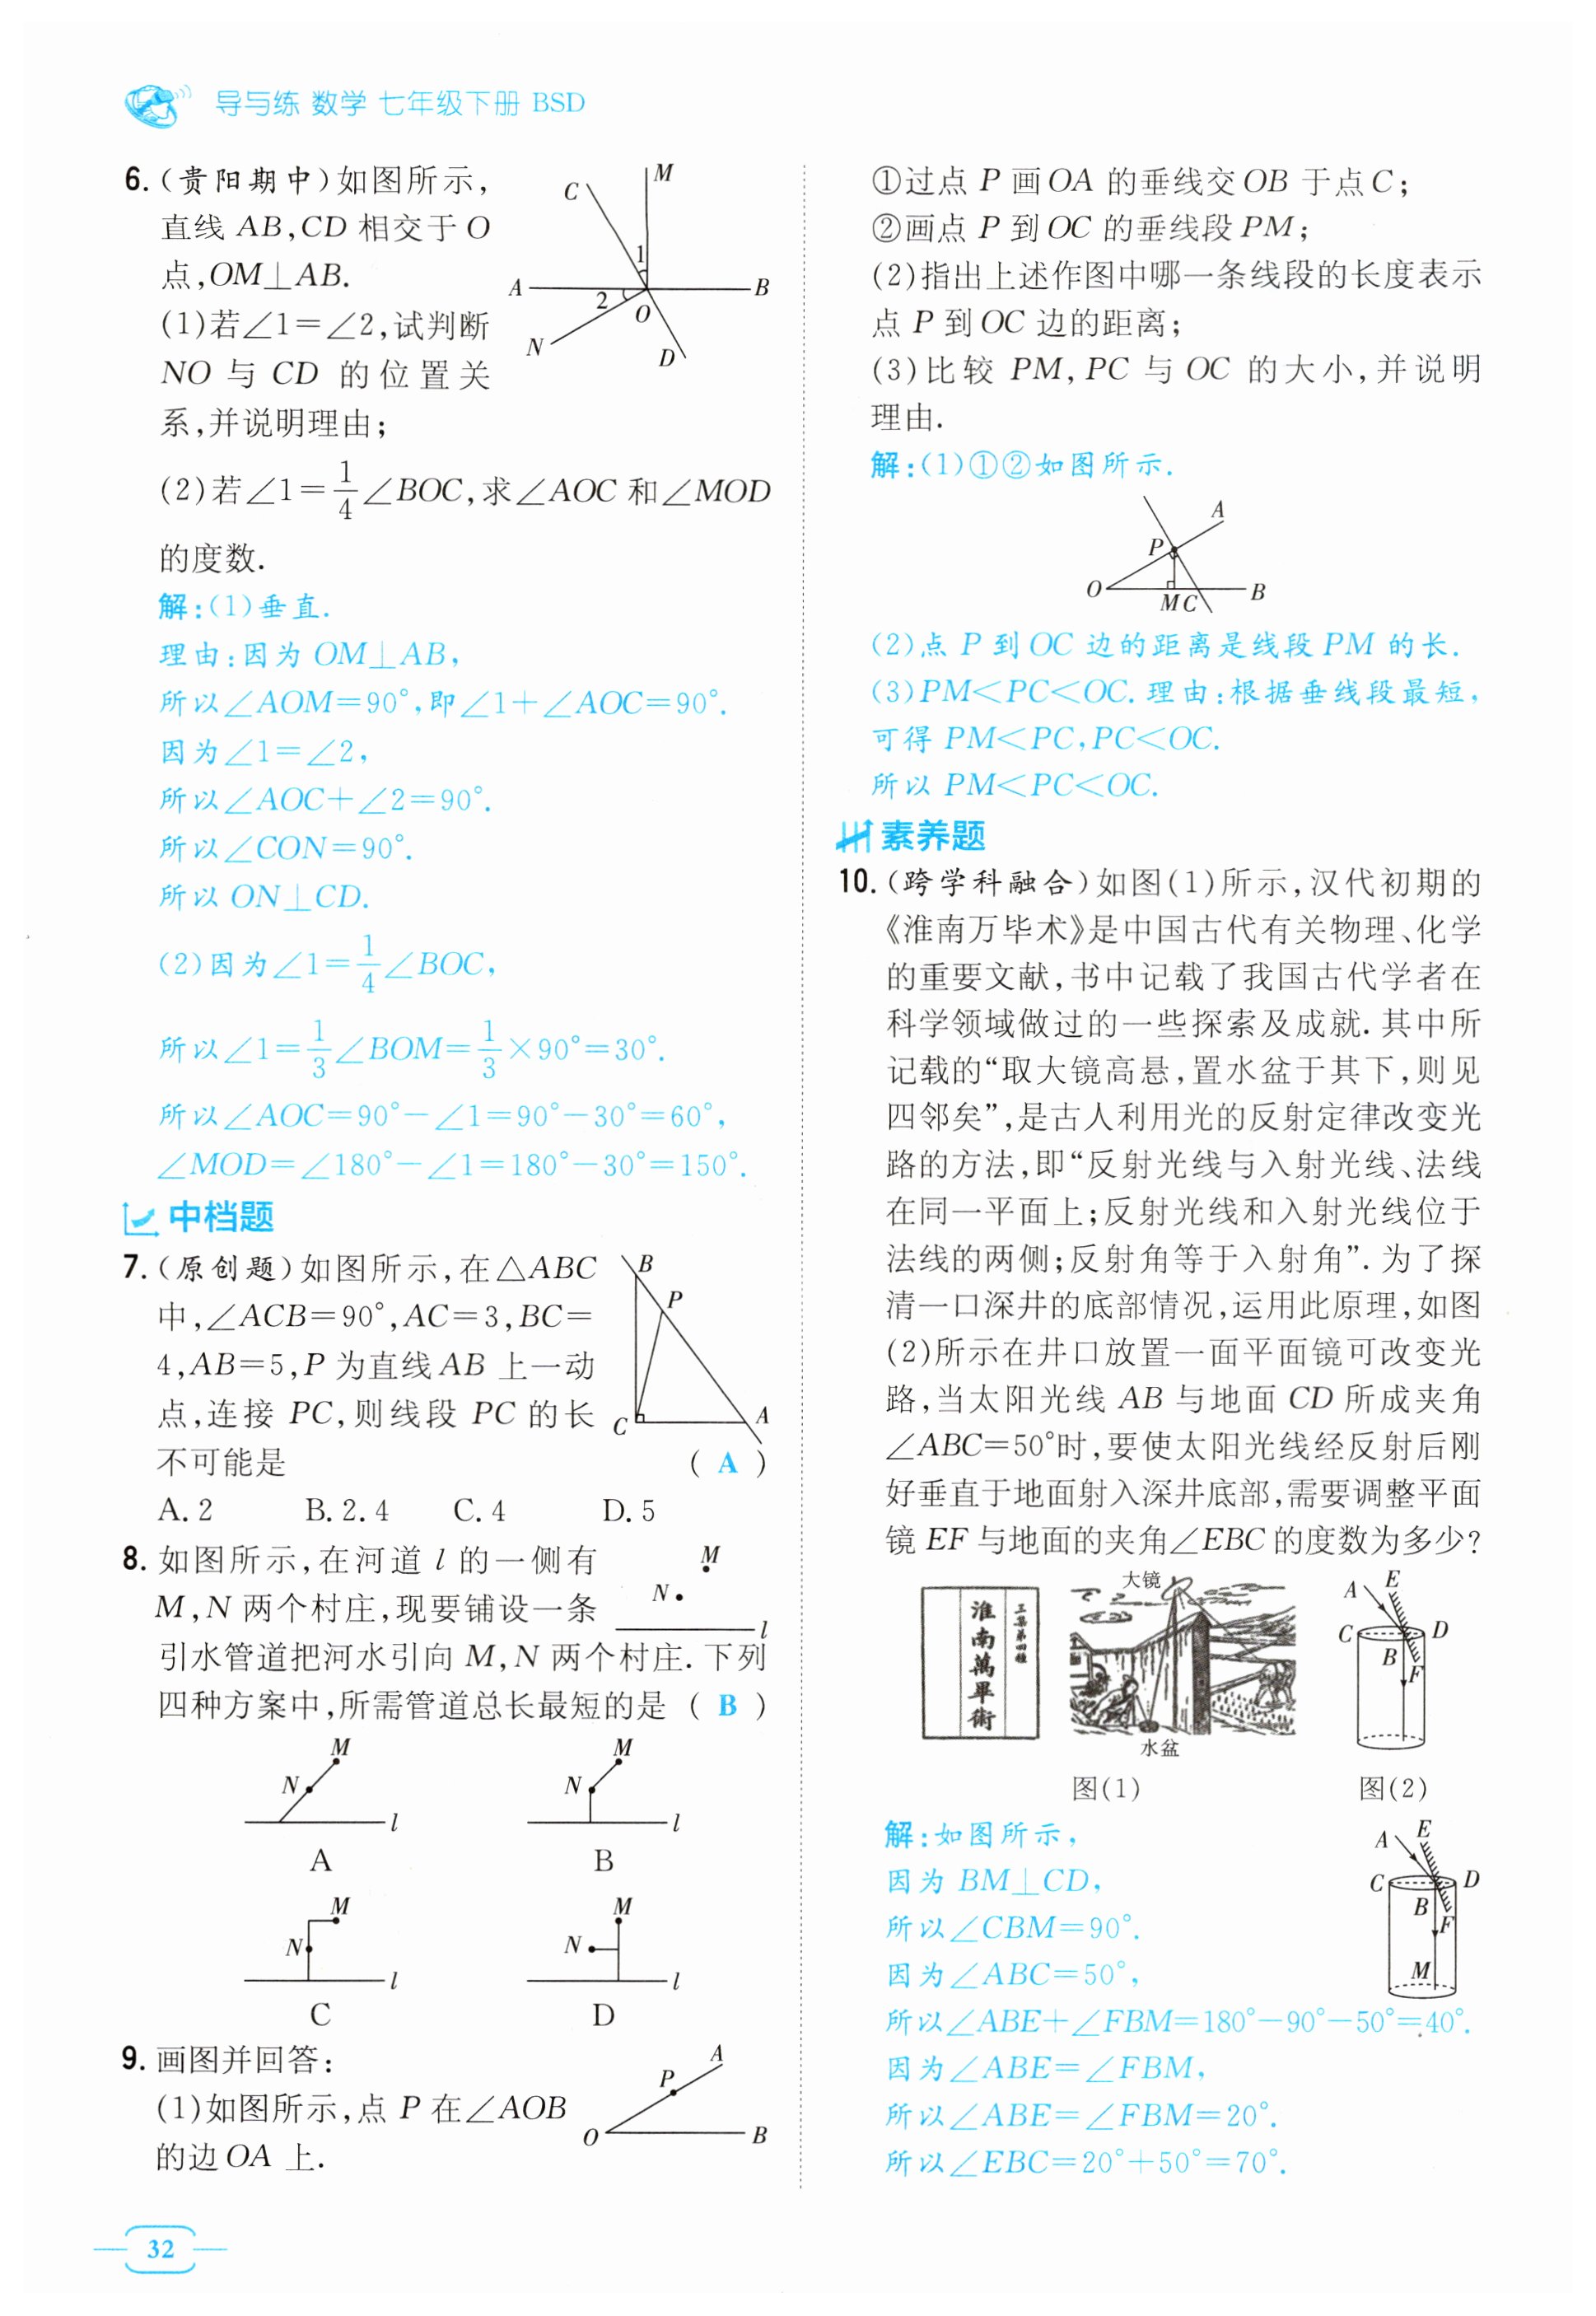 导与练 数学 七年级下册 BSD
6.(贵阳期中)如图所示,
直线 AB,CD 相交于 O
点,OM⊥AB.
(1)若∠1=∠2,试判断
NO 与 CD 的位置关
系,并说明理由;
(2)若∠1=1/4∠BOC,求∠AOC 和∠MOD
的度数.
C M
1
A 2 O B
N D
解:(1)垂直.
理由:因为 OM⊥AB,
所以∠AOM=90°,即∠1+∠AOC=90°.
因为∠1=∠2,
所以∠AOC+∠2=90°.
所以∠CON=90°.
所以 ON⊥CD.
(2)因为∠1=1/4∠BOC,
所以∠1=1/3∠BOM=1/3×90°=30°.
所以∠AOC=90°-∠1=90°-30°=60°,
∠MOD=∠180°-∠1=180°-30°=150°.
中档题
7.(原创题)如图所示,在△ABC
中,∠ACB=90°,AC=3,BC=
4,AB=5,P 为直线 AB 上一动
点,连接 PC,则线段 PC 的长
不可能是 ( A )
B
P
C A
A. 2 B. 2.4 C. 4 D. 5
8. 如图所示,在河道 l 的一侧有
M,N 两个村庄,现要铺设一条
引水管道把河水引向 M,N 两个村庄. 下列
四种方案中,所需管道总长最短的是 ( B )
M
N
l
M M
N N
l l
A B
M M
N N
l l
C D
9. 画图并回答:
(1)如图所示,点 P 在∠AOB
的边 OA 上.
A
P
O B
①过点 P 画 OA 的垂线交 OB 于点 C;
②画点 P 到 OC 的垂线段 PM;
(2)指出上述作图中哪一条线段的长度表示
点 P 到 OC 边的距离;
(3)比较 PM,PC 与 OC 的大小,并说明
理由.
解:(1)①②如图所示.
A
P
O B
M C
(2)点 P 到 OC 边的距离是线段 PM 的长.
(3)PM<PC<OC. 理由:根据垂线段最短,
可得 PM<PC,PC<OC.
所以 PM<PC<OC.
素养题
10.(跨学科融合)如图(1)所示,汉代初期的
《淮南万毕术》是中国古代有关物理、化学
的重要文献,书中记载了我国古代学者在
科学领域做过的一些探索及成就. 其中所
记载的“取大镜高悬,置水盆于其下,则见
四邻矣”,是古人利用光的反射定律改变光
路的方法,即“反射光线与入射光线、法线
在同一平面上;反射光线和入射光线位于
法线的两侧;反射角等于入射角”. 为了探
清一口深井的底部情况,运用此原理,如图
(2)所示在井口放置一面平面镜可改变光
路,当太阳光线 AB 与地面 CD 所成夹角
∠ABC=50°时,要使太阳光线经反射后刚
好垂直于地面射入深井底部,需要调整平面
镜 EF 与地面的夹角∠EBC 的度数为多少?
淮南萬畢術
大镜
水盆
A E
C D
B F
图(1) 图(2)
解:如图所示,
因为 BM⊥CD,
所以∠CBM=90°.
因为∠ABC=50°,
所以∠ABE+∠FBM=180°-90°-50°=40°.
因为∠ABE=∠FBM,
所以∠ABE=∠FBM=20°.
所以∠EBC=20°+50°=70°.
A E
C D
B F
M
32